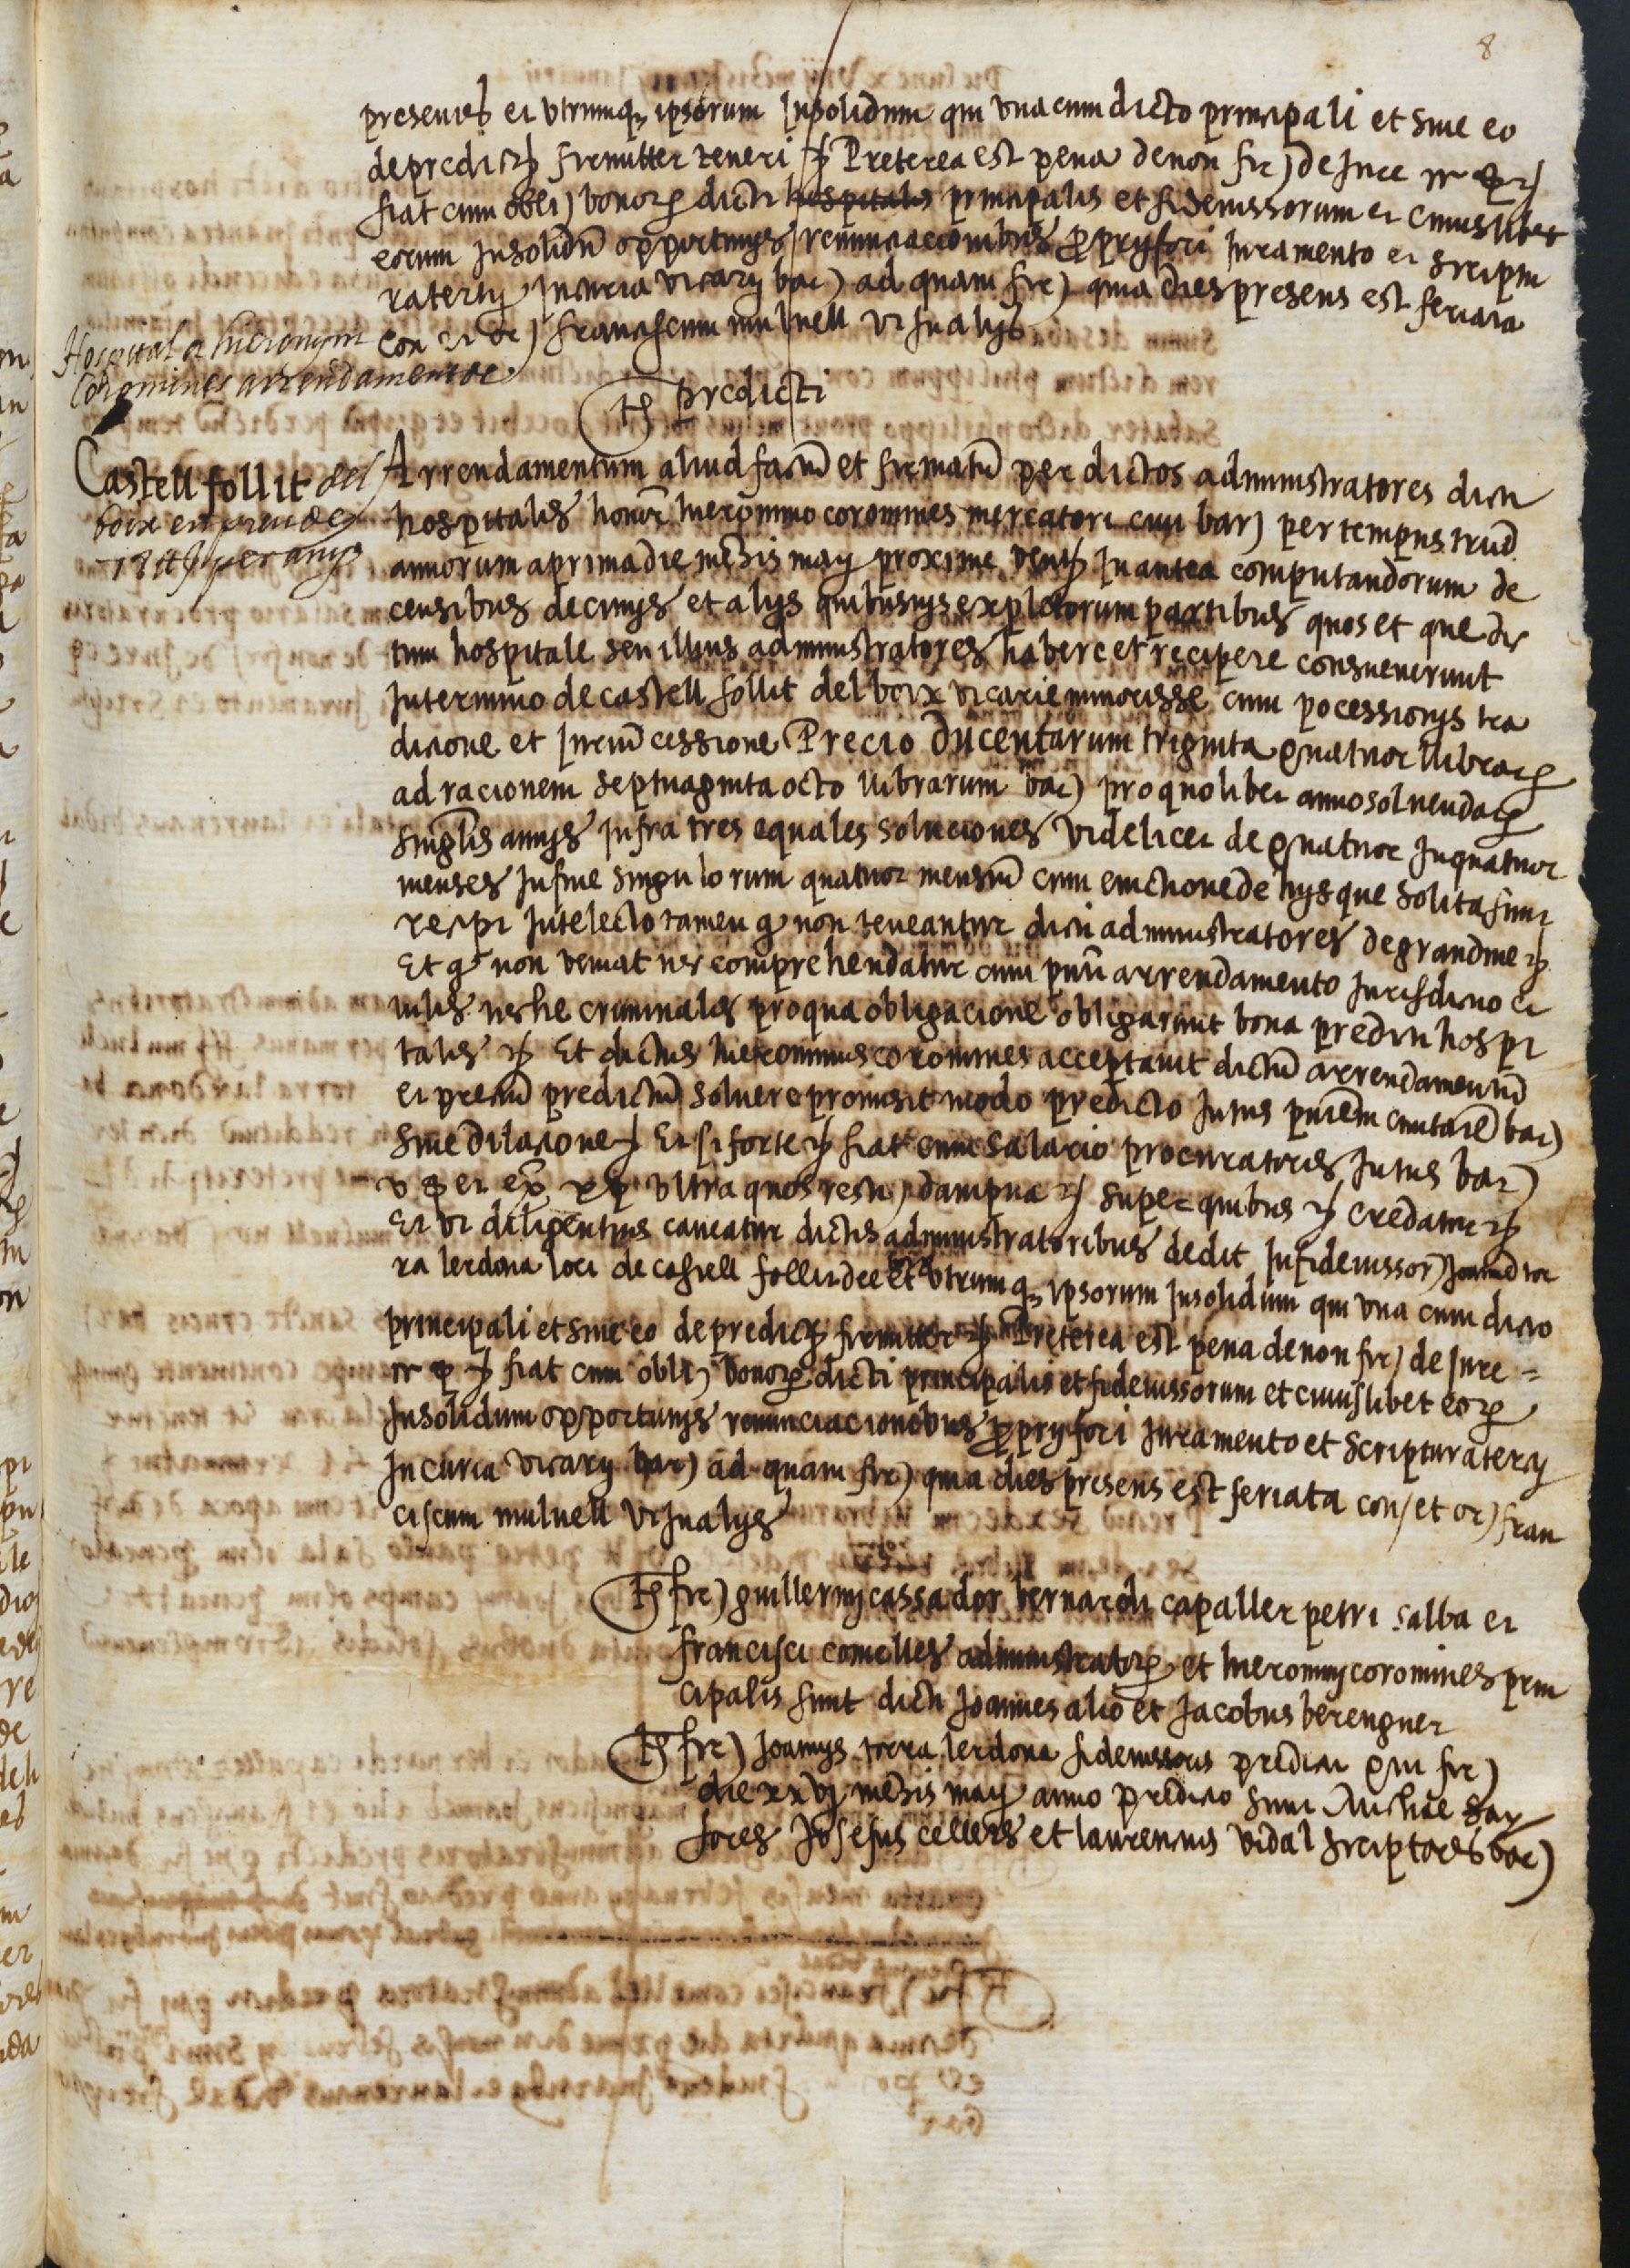 8
presentes et utrumq, ipsorum Insolidum qui unacum dicto principali et sine eo
de predictis firmiter teneri etc Preterea est pena denon fir) de Jure
fiat cum obli) bonor dicti hospitalis principalis et fideiussorum et cuiuslibet
eorum Insolidu opportunys renunciacionibus propry fori Juramento et scriptu
ratercy Incuria vicary bar) ad quam fir) quia dies presens est feriata
con et or) franciscum mulnell ut Jn alys
Hospital a hieronym
Coromines arrendament de
Ts predicti
Castell follit del
boix en preu de
per anys
Arrendamentum aliud factu et firmatu per dictos administratores dicti
hospitalis honor hieronimo coromines mercatori civi bar) per tempus triu
annorum aprima die mensis may proxime vent Inantea computandorum de
censibus decimys et alys quibusvys expletorum partibus quos et que dic
tum hospitale seu illius administratores habere et recipere consueverunt
Intermino de castell follit del boix vicarie minorisse cum pocessionys tra
dicione et Jurium cessione Precio ducentarum triginta quatuor llibrar
ad racionem septuaginta octo llibrarum bar) pro quolibet anno solvendar
singlis annys Infra tres equales soluciones videlicet de quatuor Inquatuor
menses Infine singulorum quatuor mensiu cum evictione de hys que solita sunt
recipi Intelecto tamen q non teneantur dicti administratores de grandine etc
Et q non veniat nec comprehendatur cum pnti arrendamento Jurisdictio ci
vilis neche criminalis pro qua obligacione obligarunt bona predicti hospi
talis etc Et dictus hieronimus coromines acceptavit dictu arrendamentu
et preciu predictu solvere promisit modo predicto Intus pntem civitate bar)
sine dilacione etc Et si forte etc fiat cum salario procuratoris Intus bar)
v s et ex x s ultra quos resti) dampna etc super quibus etc credatur etc
Et ut diligentius caveatur dictis administratoribus dedit Infideiussor) Joannem tor
ra lerdona loci de castell follit dee et utrumq, ipsorum Insolidum qui una cum dicto
principali et sine eo de predictis firmiter etc Preterea est pena denon fir) de Jure =
etc fiat cum obli) bonor dicti principalis et fideiussorum et cuiuslibet eor
Insolidum opportunys renunciacionobus propry fori Juramento et scripturatercy
In curia vicary bar) ad quam fir) quia dies presens est feriata con) et or) fran
ciscum mulnell ut Jn alys
Ts fir) guillermy cassador bernardi capaller petri salba et
francisci comelles administrator et hieronimy coromines prin
cipalis sunt dicti Joannes alio et Jacobus berenguer
Ts fir) Joannys torra lerdona fideiussoris predicti qui fir)
die xxvj mensis may anno predicto sunt Michael say
fores Josefus cellers et laurencius vidal scriptores bar)